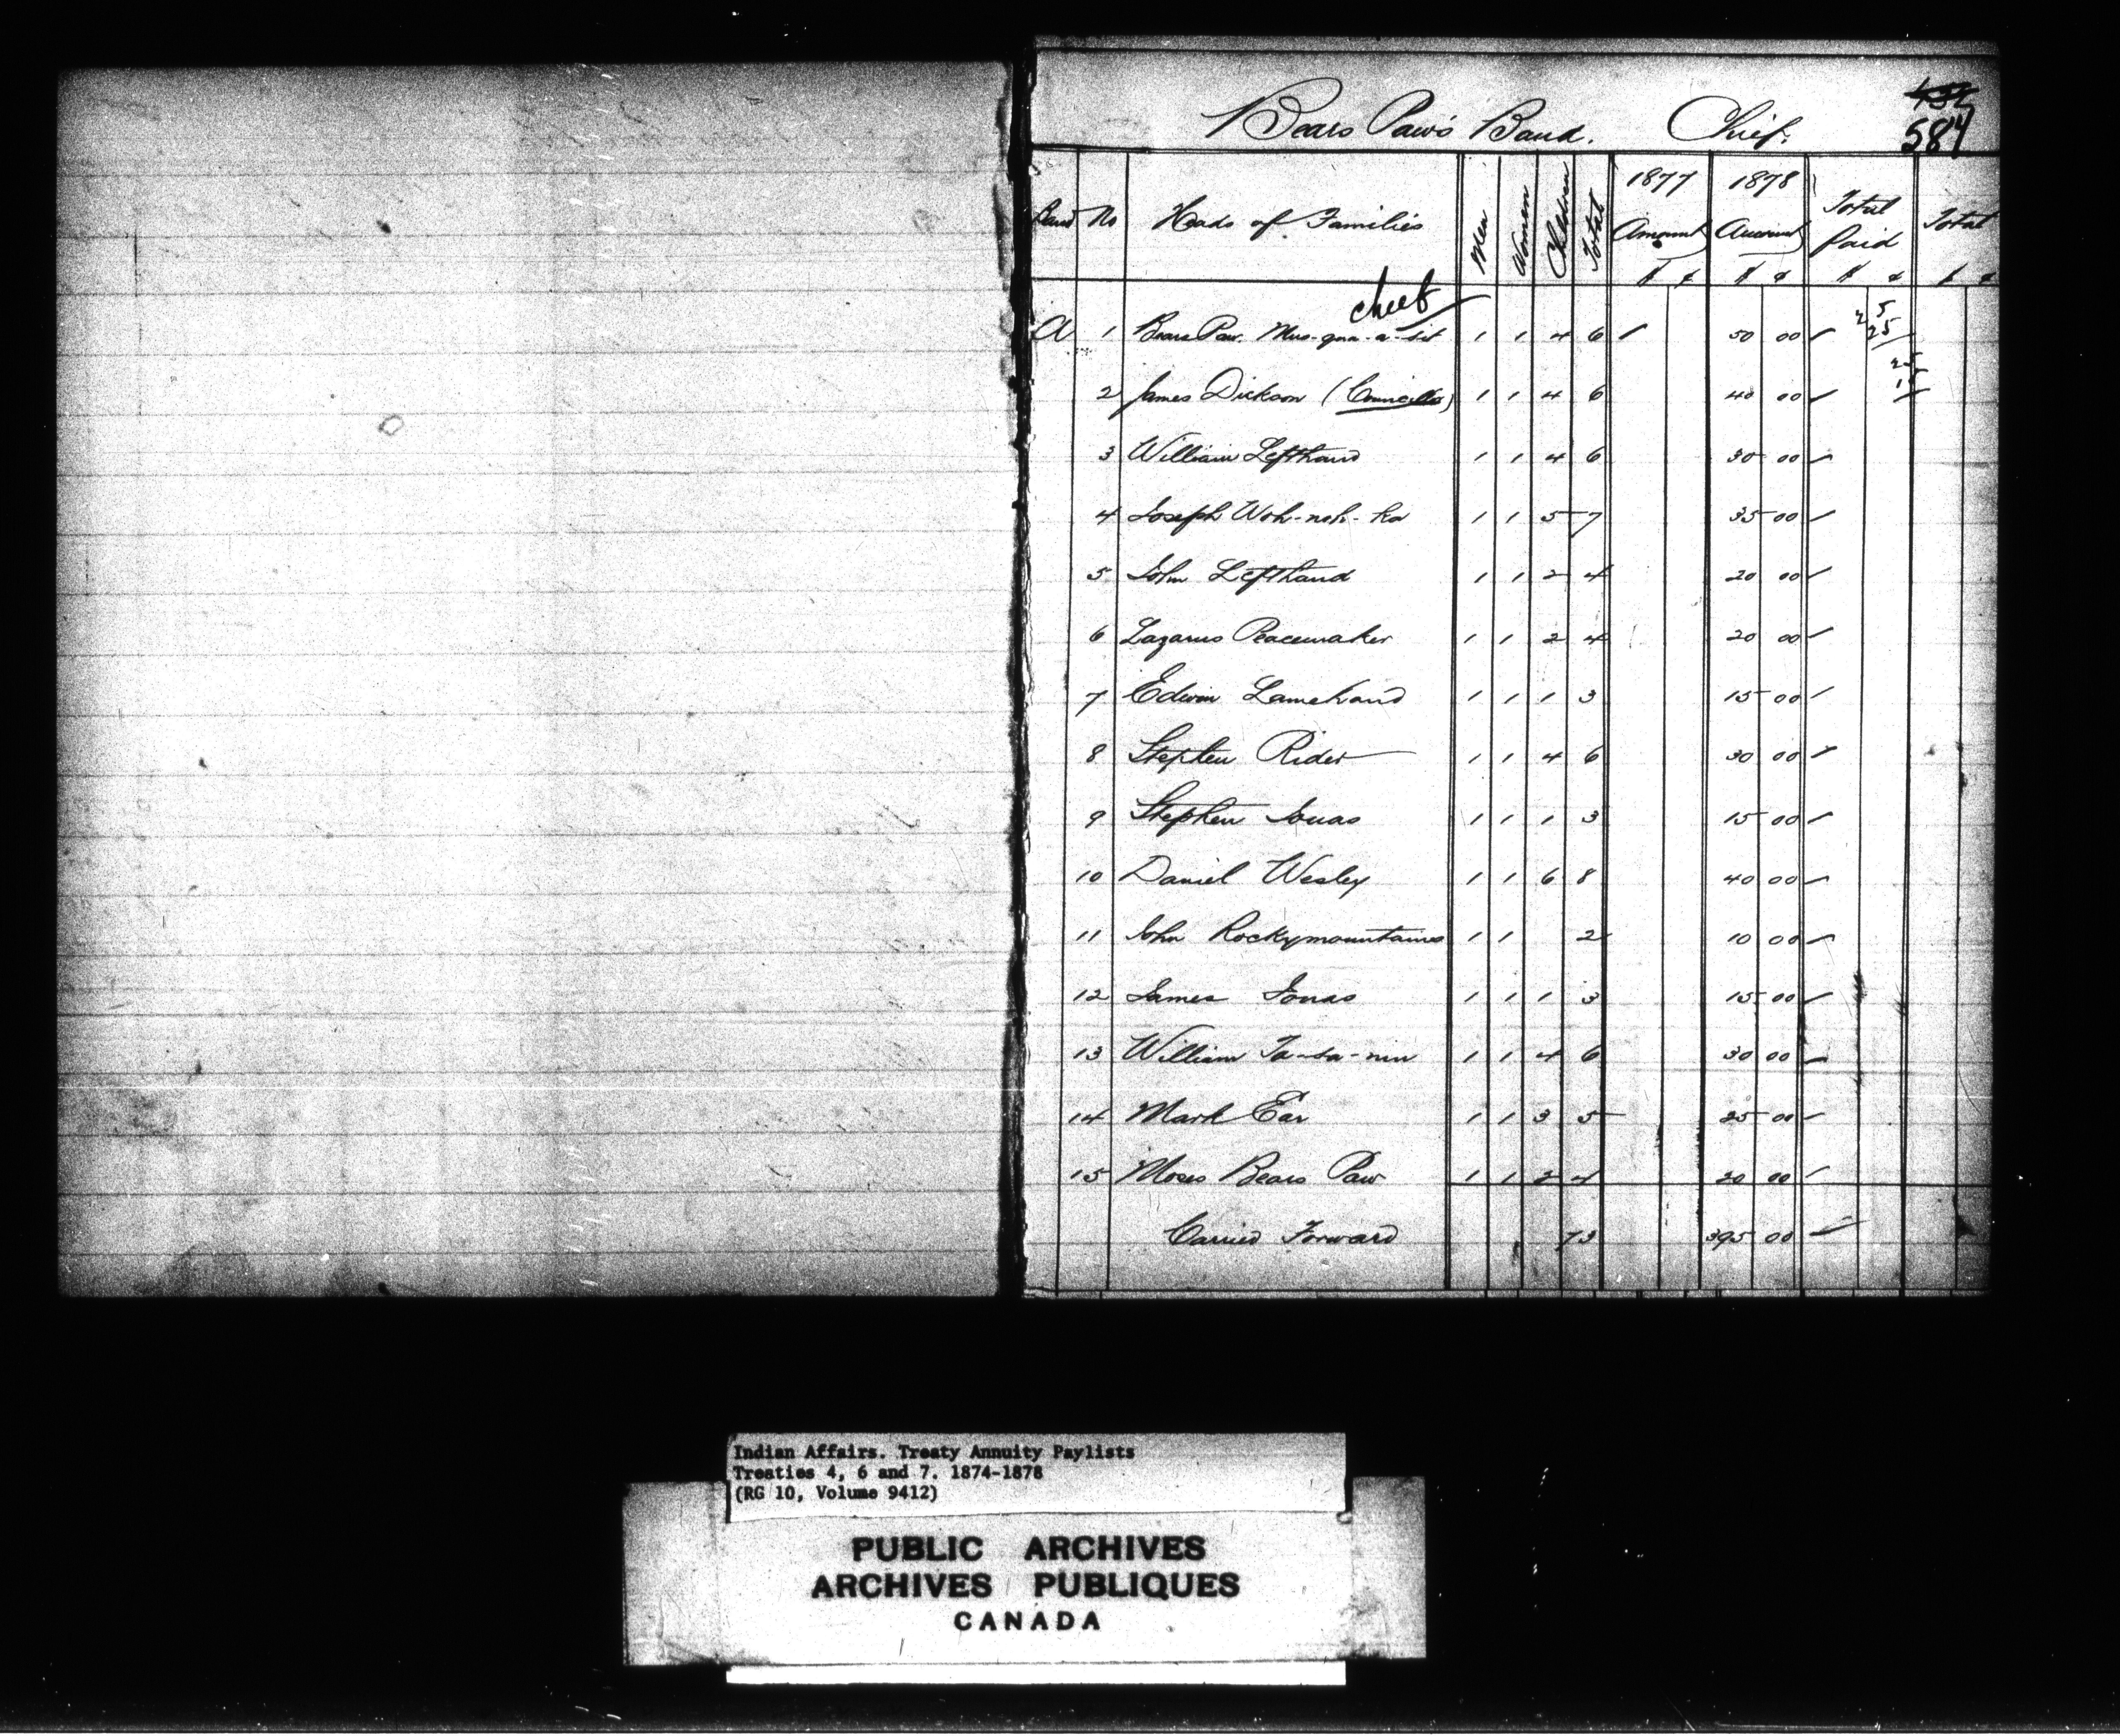 Bears Paw's Band. Chief.
584
Band No Heads of Families Men Women Children Total 1877 Amount 1878 Amount Total Paid Total
$ ¢ $ ¢ $ ¢ $ ¢
Chief 25
A 1 Bears Paw. Mus-qua-a-sit 1 1 4 6 50 00 25
25
2 James Dickson (Councillor) 1 1 4 6 40 00 15
3 William Lefthand 1 1 4 6 30 00
4 Joseph Woh-noh-ka 1 1 5 7 35 00
5 John Lefthand 1 1 2 4 20 00
6 Lazarus Peacemaker 1 1 2 4 20 00
7 Edwin Lamehand 1 1 1 3 15 00
8 Stephen Rider 1 1 4 6 30 00
9 Stephen Jonas 1 1 1 3 15 00
10 Daniel Wesley 1 1 6 8 40 00
11 John Rockymountains 1 1 2 10 00
12 James Jonas 1 1 1 3 15 00
13 William Ta-sa-nin 1 1 4 6 30 00
14 Mark Ear 1 1 3 5 25 00
15 Moses Bears Paw 1 1 2 4 20 00
Carried Forward 73 395 00
Indian Affairs. Treaty Annuity Paylists
Treaties 4, 6 and 7. 1874-1878
(RG 10, Volume 9412)
PUBLIC ARCHIVES
ARCHIVES PUBLIQUES
CANADA